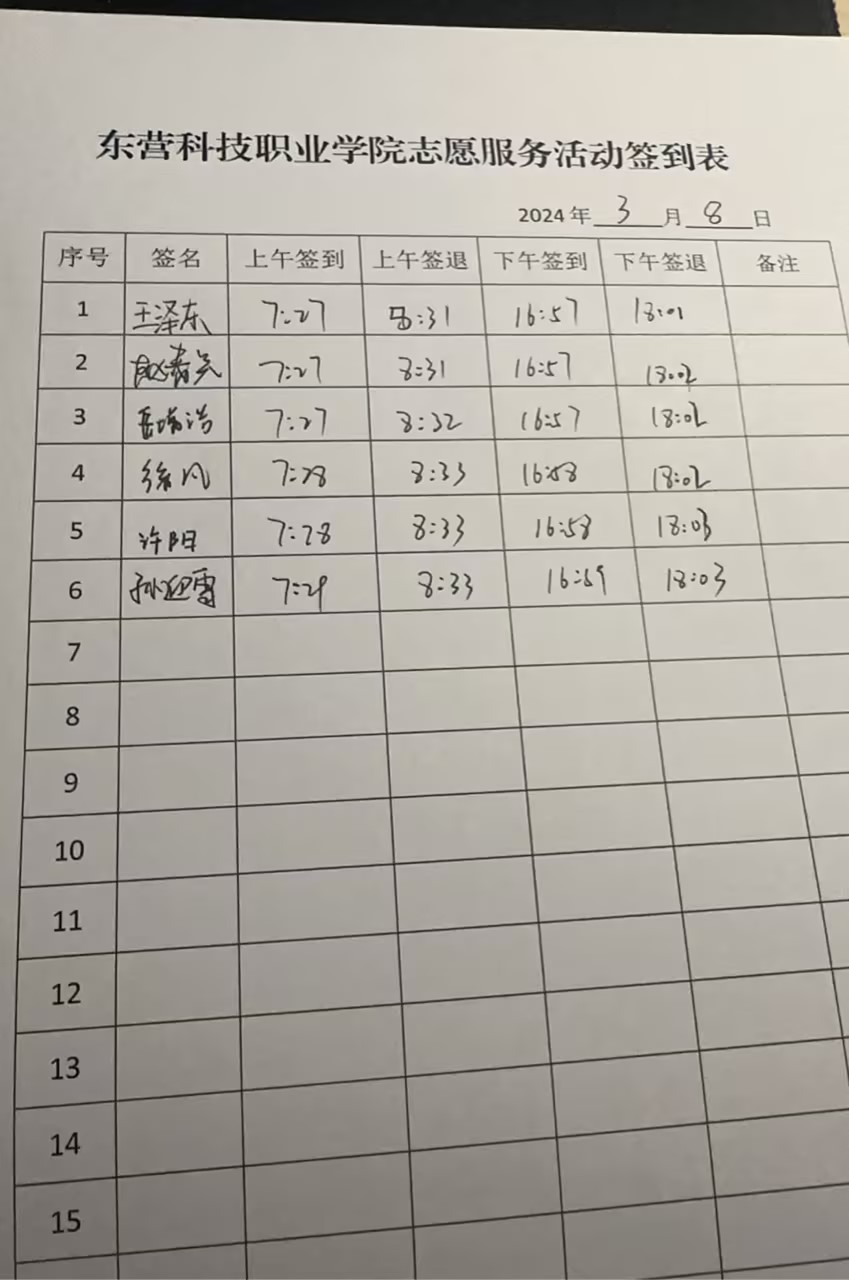 东营科技职业学院志愿服务活动签到表
2024年 3 月 8 日
序号 签名 上午签到 上午签退 下午签到 下午签退 备注
1 王泽东 7:27 8:31 16:57 18:01
2 7:27 8:31 16:57 18:02
3 7:27 8:32 16:57 18:02
4 徐凡 7:28 8:33 16:58 18:02
5 许阳 7:28 8:33 16:58 18:03
6 孙迎雪 7:29 8:33 16:59 18:03
7
8
9
10
11
12
13
14
15